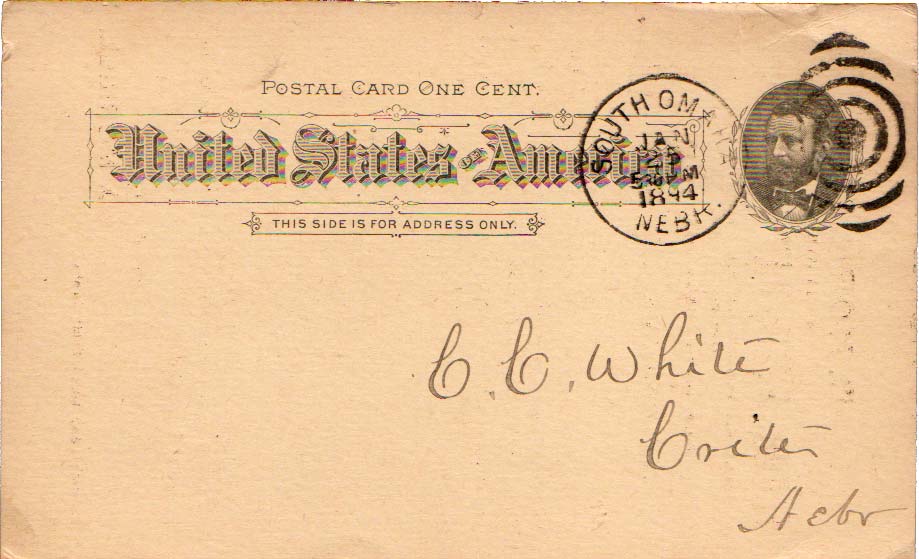 POSTAL CARD ONE CENT.
United States of America
THIS SIDE IS FOR ADDRESS ONLY.
SOUTH OMAHA
JAN
25
M
1894
NEBR.
C. C. White
Crete
Nebr